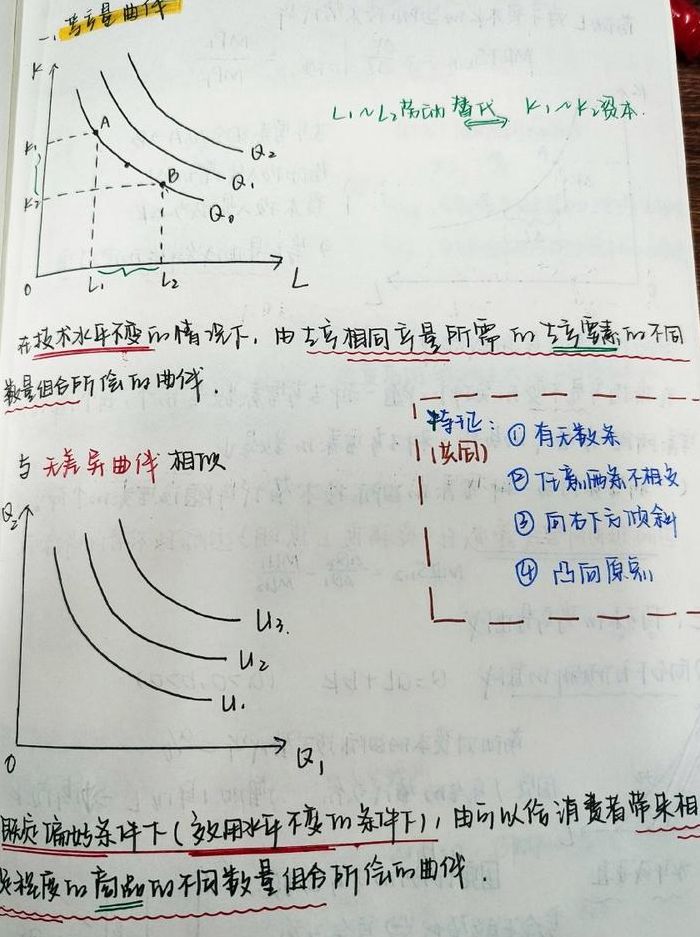 一、等产量曲线
K
L₁~L₂劳动 替代 ⇔ K₁~K₂资本.
K₁ A
Q₂
Q₁
K₂ B
Q₀
0 L₁ L₂ L
在技术水平不变的情况下，由生产相同产量所需的生产要素的不同
数量组合所绘的曲线.
特征：① 有无数条
(共同)
② 任意两条不相交
③ 向右下方倾斜
④ 凸向原点
与 无差异曲线 相似
Q₂
U₃.
U₂
U₁
0 Q₁
偏好条件下(效用水平不变的条件下)，由可以给消费者带来相
程度的商品的不同数量组合所绘的曲线.